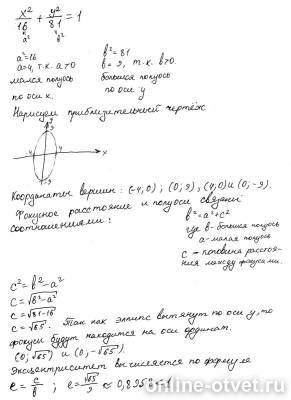 x²/16 + y²/81 = 1
a² b²
a² = 16 b² = 81
a = 4, т.к. a>0 b = 9, т.к. b>0.
малая полуось большая полуось
по оси x. по оси y
Нарисуем приблизительный чертёж
y
9
-4 4 x
-9
Координаты вершин: (-4,0); (0; 9), (4,0) и (0; -9).
Фокусное расстояние и полуоси связаны
соотношениями: b² = a² + c²
где b - большая полуось
a - малая полуось
c - половина расстоя-
ния между фокусами.
c² = b² - a²
c = √b² - a²
c = √81-16
c = √65. Так как эллипс вытянут по оси y, то
фокусы будут находится на оси ординат.
(0; √65) и (0; -√65).
Эксцентриситет вычисляется по формуле
e = c/b; e = √65/9 ≈ 0,8958
online-otvet.ru